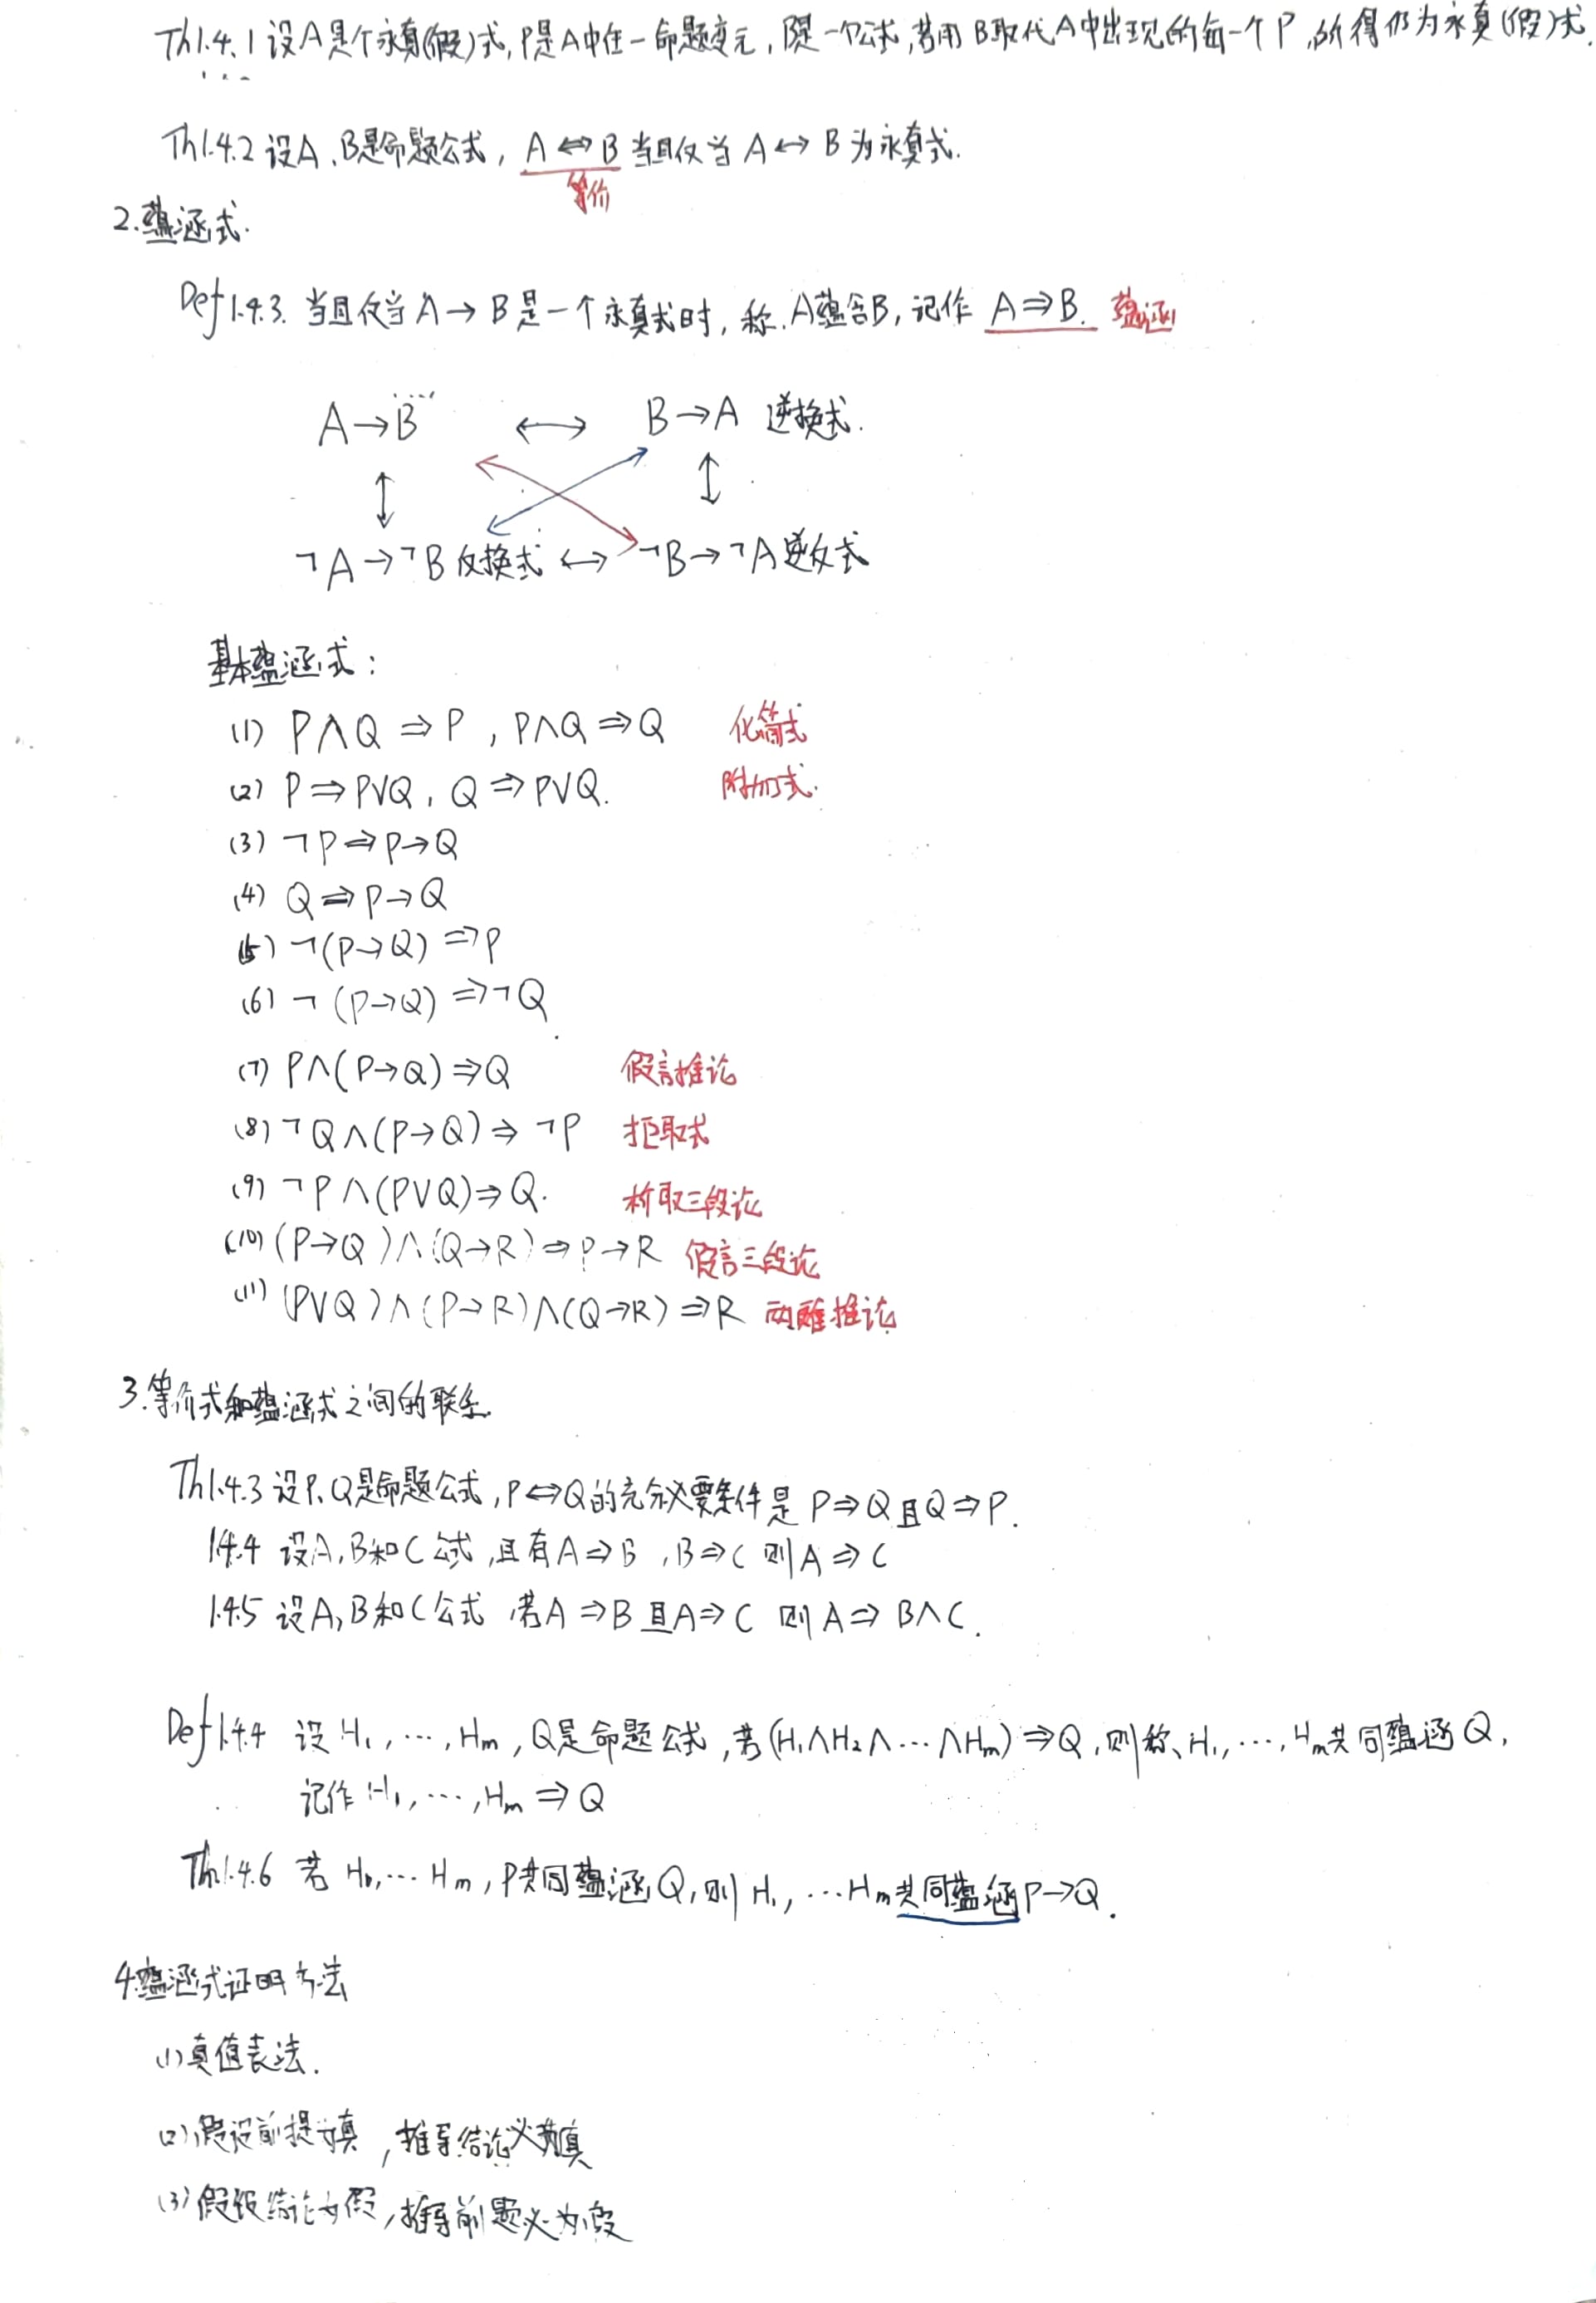 Th1.4.1 设A是个永真(假)式,P是A中任一命题变元,B是一个公式,若用B取代A中出现的每一个P,所得仍为永真(假)式.
Th1.4.2 设A、B是命题公式, A⇔B 当且仅当 A↔B 为永真式.
等价
2.蕴涵式.
Def1.4.3. 当且仅当 A→B 是一个永真式时, 称.A蕴含B, 记作 A⇒B. 蕴涵
A→B ↔ B→A 逆换式.
¬A→¬B 反换式 ↔ ¬B→¬A 逆反式
基本蕴涵式:
(1) P∧Q ⇒ P , P∧Q ⇒ Q 化简式
(2) P ⇒ P∨Q , Q ⇒ P∨Q. 附加式.
(3) ¬P ⇒ P→Q
(4) Q ⇒ P→Q
(5) ¬(P→Q) ⇒ P
(6) ¬(P→Q) ⇒ ¬Q
(7) P∧(P→Q) ⇒ Q 假言推论
(8) ¬Q∧(P→Q) ⇒ ¬P 拒取式
(9) ¬P∧(P∨Q) ⇒ Q. 析取三段论
(10) (P→Q)∧(Q→R) ⇒ P→R 假言三段论
(11) (P∨Q)∧(P→R)∧(Q→R) ⇒ R 两难推论
3.等价式和蕴涵式之间的联系.
Th1.4.3 设P、Q是命题公式, P⇔Q的充分必要条件是 P⇒Q且Q⇒P.
1.4.4 设A,B和C公式,且有A⇒B ,B⇒C 则A⇒C
1.4.5 设A,B和C公式 ,若A⇒B且A⇒C 则A⇒B∧C.
Def1.4.4 设 H₁, ⋯, Hm, Q是命题公式,若(H₁∧H₂∧⋯∧Hm)⇒Q,则称、H₁, ⋯, Hm共同蕴涵Q,
记作 H₁, ⋯, Hm ⇒ Q
Th1.4.6 若 H₁, ⋯ Hm, P共同蕴涵Q, 则 H₁, ⋯ Hm共同蕴涵P→Q.
4.蕴涵式证明方法
(1)真值表法.
(2)假设前提为真 ,推导结论必为真
(3)假设结论为假,推导前题必为假